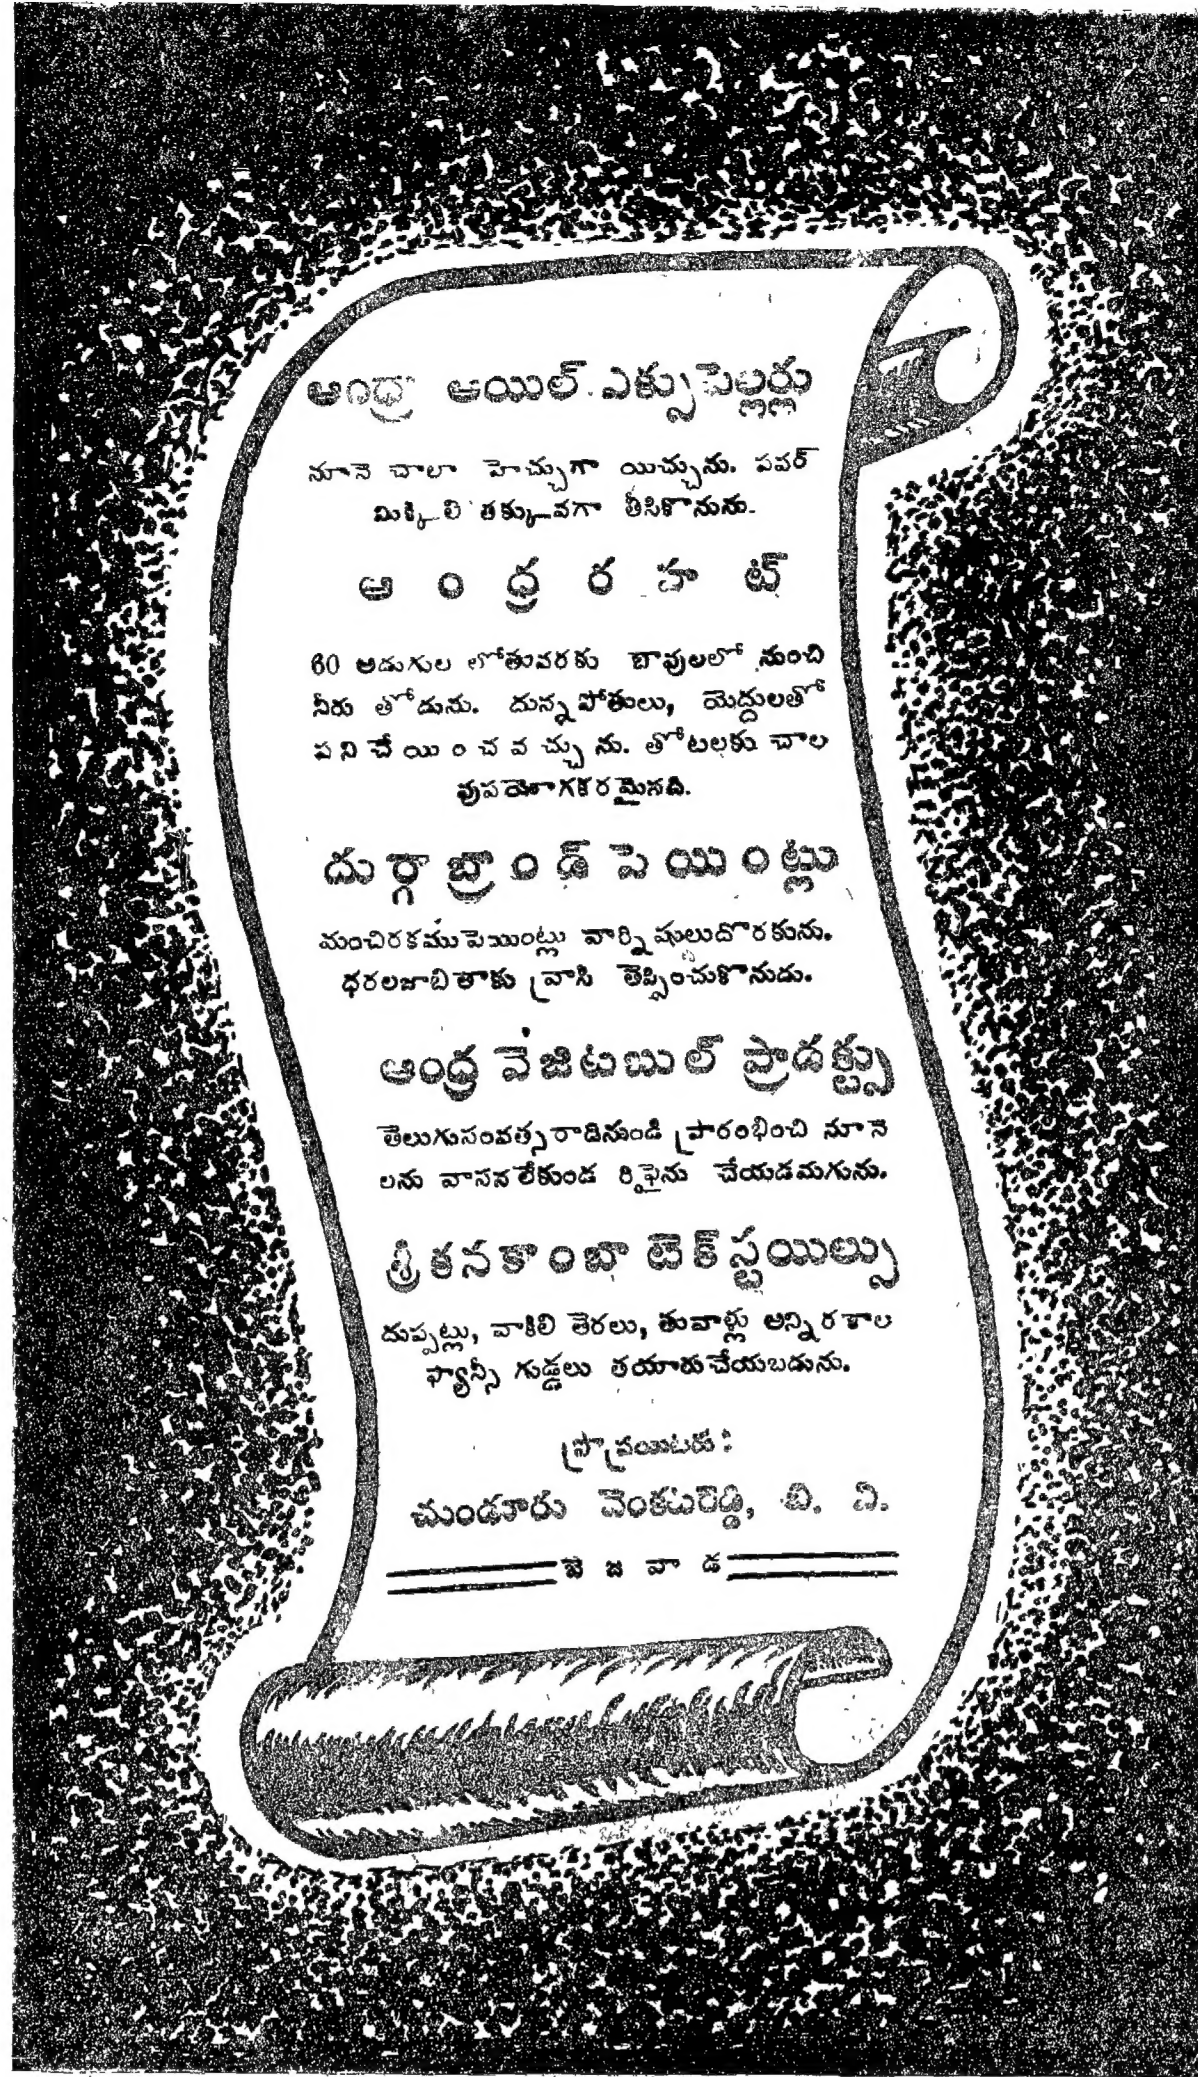 ఆంధ్రా ఆయిల్ ఎక్సు పెల్లర్లు
నూనె చాలా హెచ్చుగా యిచ్చును. పవర్
మిక్కిలి తక్కువగా తీసికొనును.
ఆంధ్ర రహట్
60 అడుగుల లోతువరకు బావులలో నుంచి
నీరు తోడును. దున్నపోతులు, యెద్దులతో
పనిచేయించవచ్చును. తోటలకు చాల
వుపయోగకరమైనది.
దుర్గాబ్రాండ్ పెయింట్లు
మంచిరకము పెయింట్లు వార్నిషులు దొరకును.
ధరలజాబితాకు వ్రాసి తెప్పించుకొనుడు.
ఆంధ్ర వెజిటబుల్ ప్రాడక్ట్సు
తెలుగుసంవత్సరాదినుండి ప్రారంభించి నూనె
లను వాసనలేకుండ రిఫైను చేయడమగును.
శ్రీ కనకాంబా టెక్ స్టయిల్సు
దుప్పట్లు, వాకిలి తెరలు, తువాళ్లు అన్ని రకాల
ఫ్యాన్సీ గుడ్డలు తయారుచేయబడును.
ప్రొప్రయిటరు :
చుండూరు వెంకటరెడ్డి, బి. ఏ.
బెజవాడ